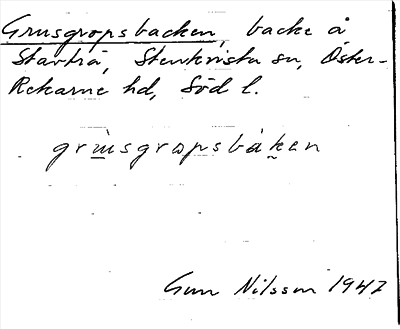 Grusgropsbacken, backe å
Stavtrå, Stenkvista sn, Öster-
Rekarne hd, Söd l.
grùsgropsbàken
Gun Nilsson 1947